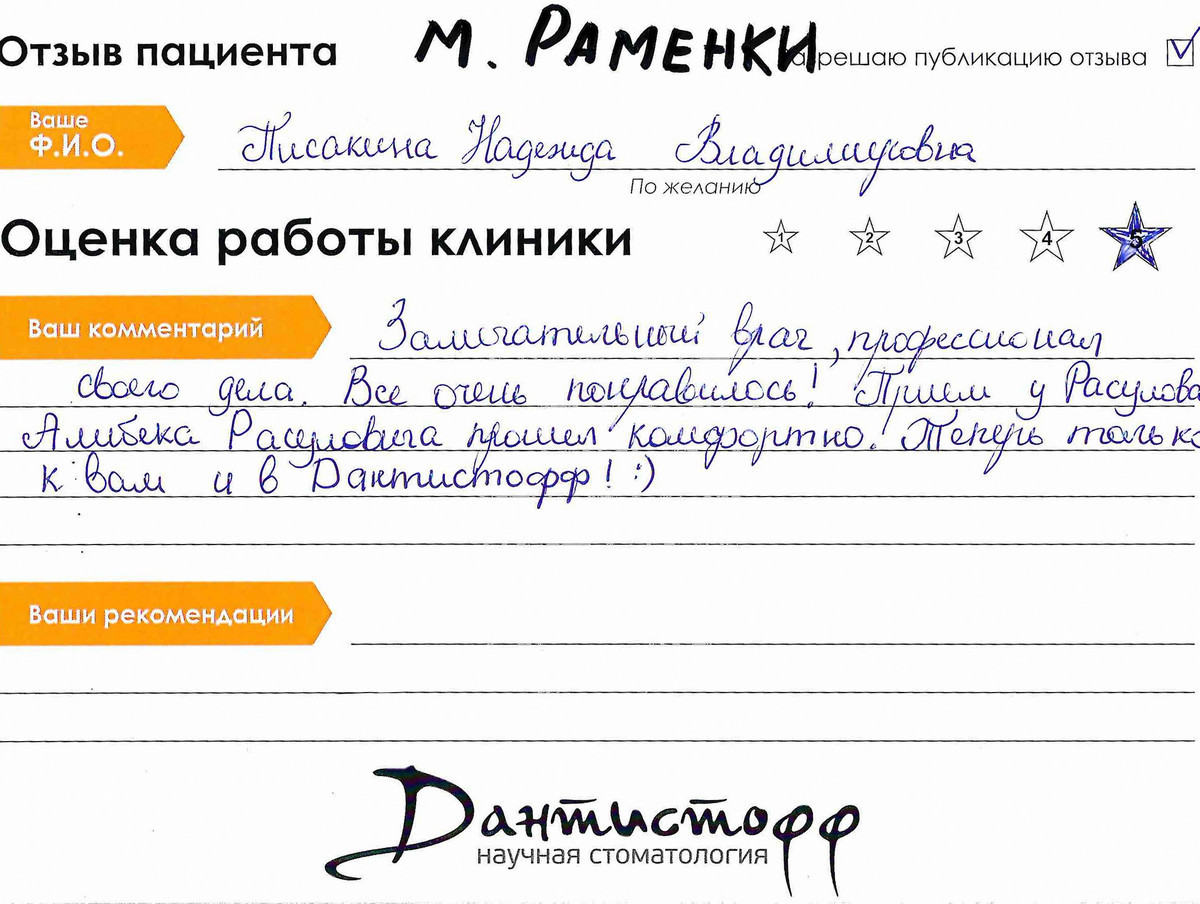 Отзыв пациента м. РАМЕНКИ разрешаю публикацию отзыва
Ваше
Ф.И.О.
Писакина Надежда Владимировна
По желанию
Оценка работы клиники 1 2 3 4 5
Ваш комментарий Замечательный врач, профессионал
своего дела. Все очень понравилось! Прием у Расулова
Алибека Расуловича прошел комфортно! Теперь только
к вам и в Дантистофф! :)
Ваши рекомендации
Дантистофф
научная стоматология